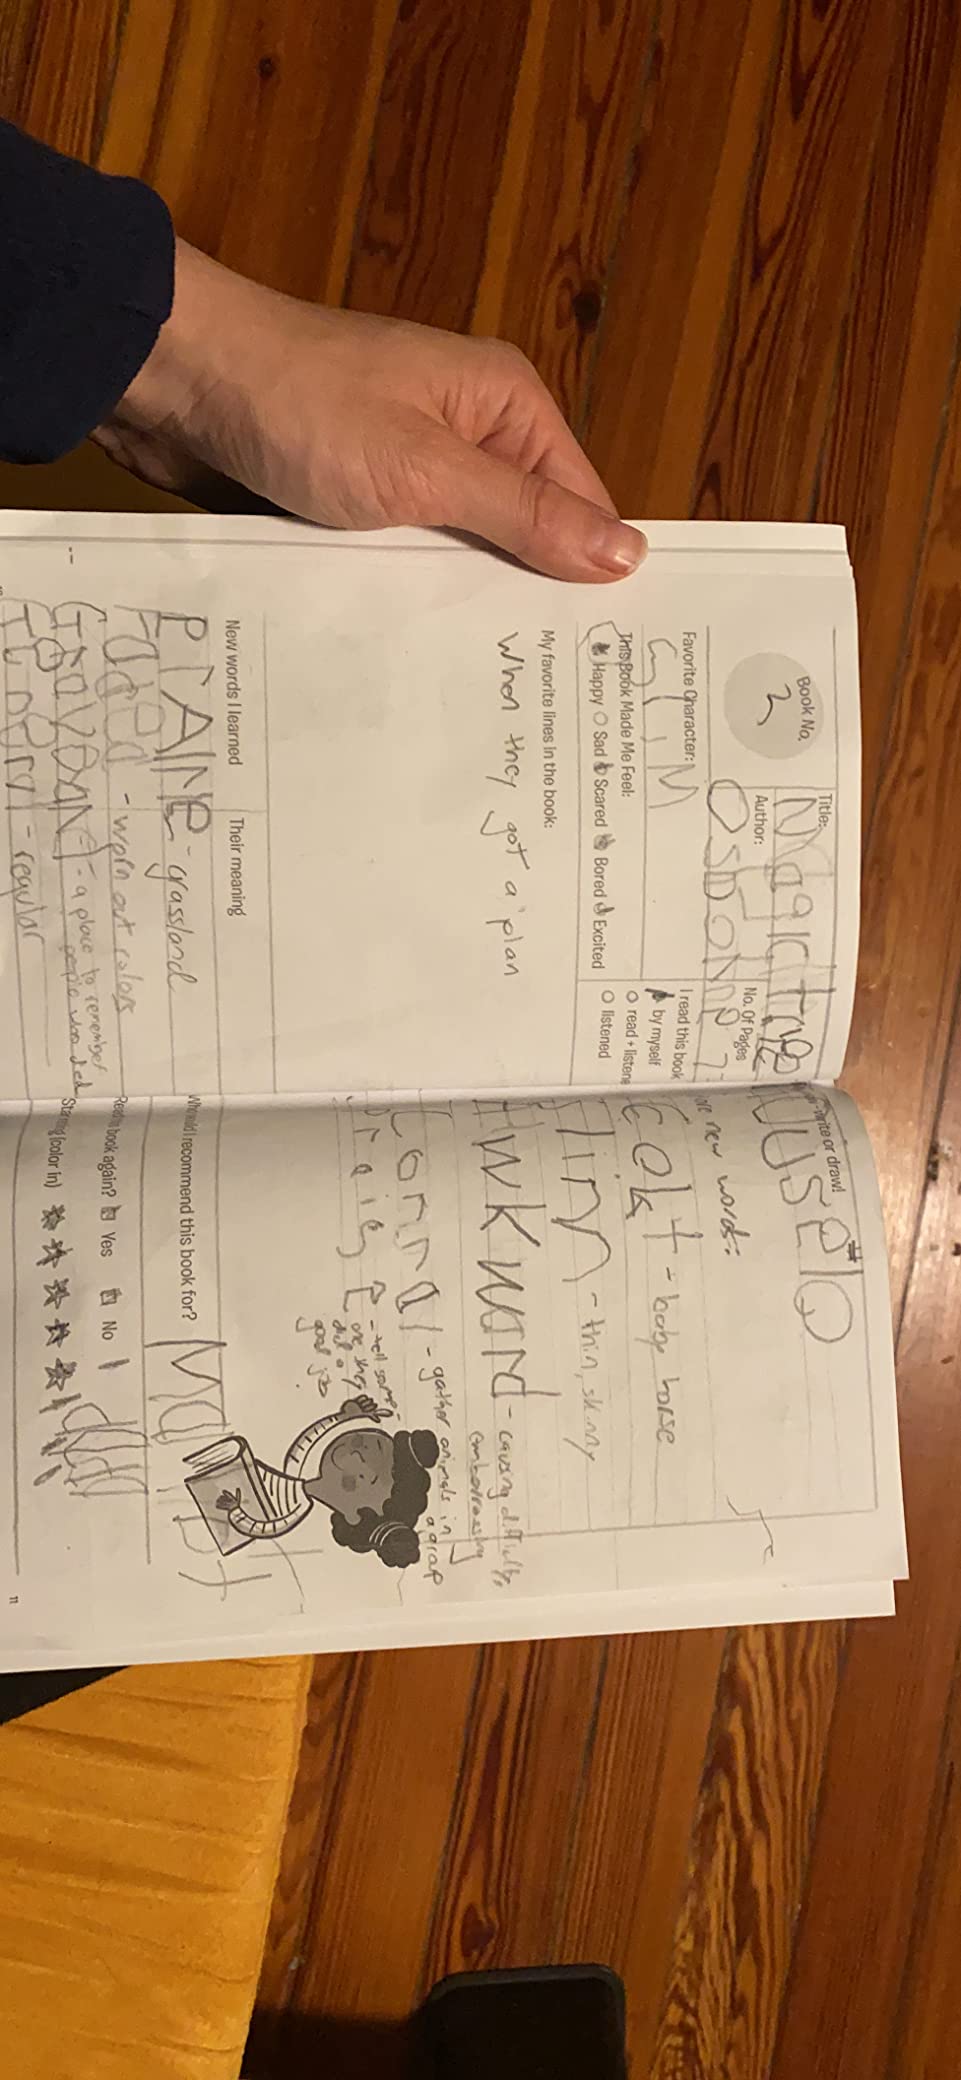 Book No.
2
Title: Magic tree
Author: Osborne
No. Of Pages 7
Favorite Character:
I read this book
by myself
read + listene
listened
This Book Made Me Feel:
Happy Sad Scared Bored Excited
My favorite lines in the book:
When they got a plan
New words I learned Their meaning
PrAIRe - grassland
Faded - worn out colors
GRAVEYARD - a place to remember
people who died
- regular
write or draw!
new words:
colt - baby horse
slim - thin, skinny
AwkwaRd - causing difficulty,
embarrassing
corral - gather animals in
a group
Praise - tell some-
one they
did a
good job
Who would I recommend this book for?
Read this book again? Yes No
Star rating (color in)
11